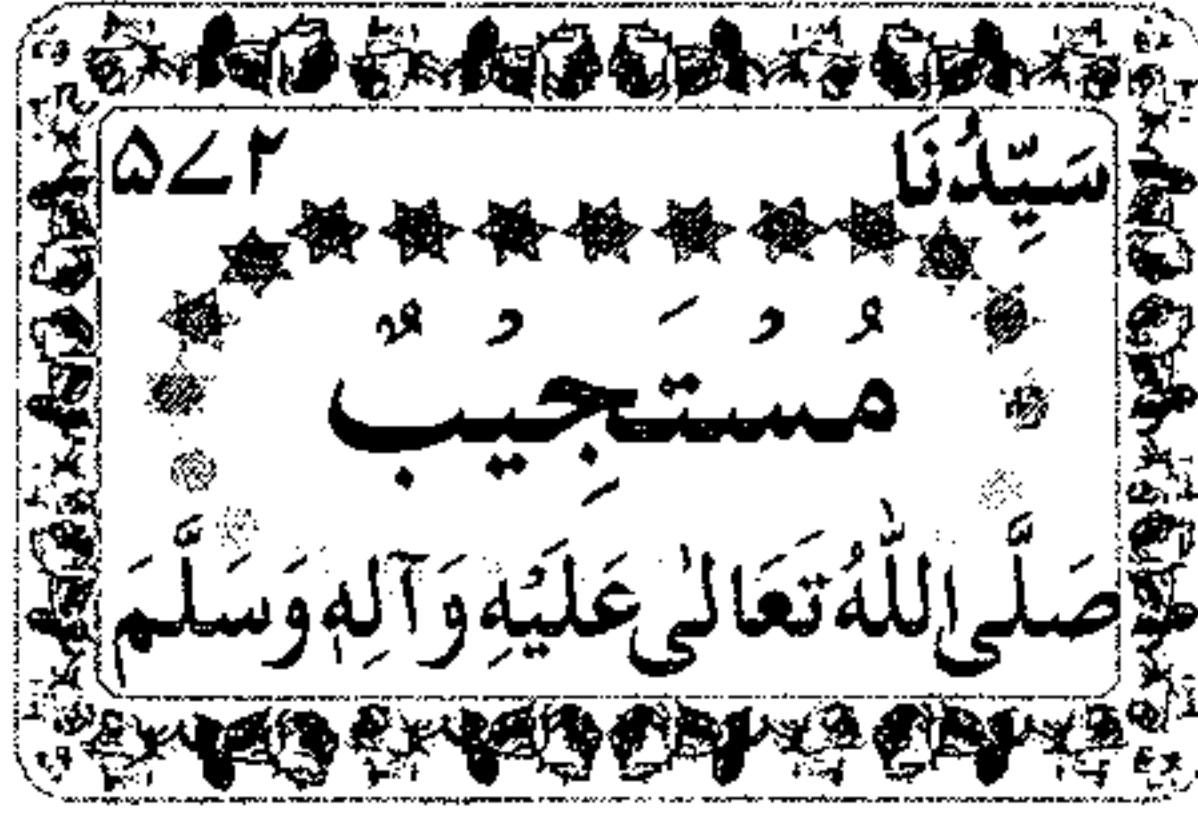 سَيِّدُنَا ۵۷۲
مُسْتَجِيْبٌ
صَلَّی اللّٰهُ تَعَالٰی عَلَيْهِ وَآلِهٖ وَسَلَّمَ